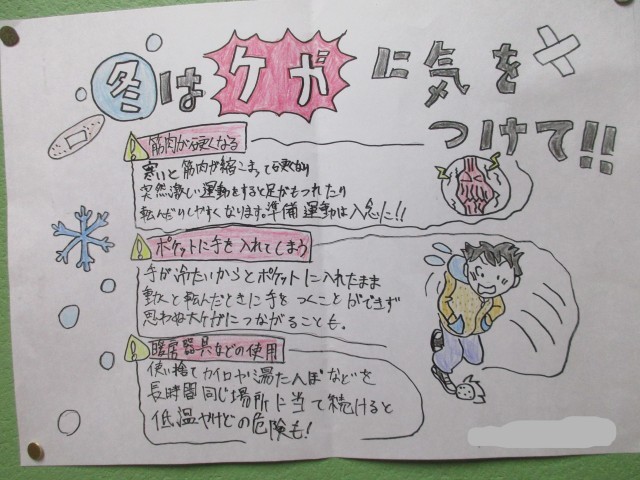 冬はケガに気を
つけて!!
筋肉が硬くなる
寒いと筋肉が縮こまって硬くなり
突然激しい運動をすると足がもつれたり
転んだりしやすくなります。準備運動は入念に!!
ポケットに手を入れてしまう
手が冷たいからとポケットに入れたまま
動くと転んだときに手をつくことができず
思わぬ大ケガにつながることも。
暖房器具などの使用
使い捨てカイロや湯たんぽなどを
長時間同じ場所に当て続けると
低温やけどの危険も!